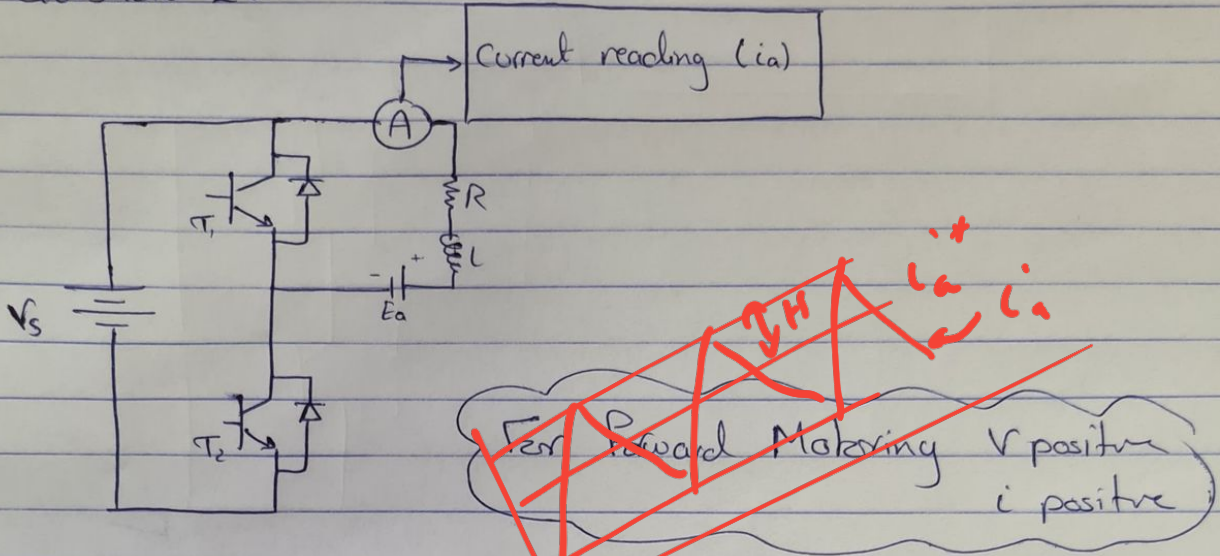 Current reading (ia)
A
R
T1
L
- +
Ea
Vs
T2
H
ia*
ia
For Forward Motoring V positive
i positive